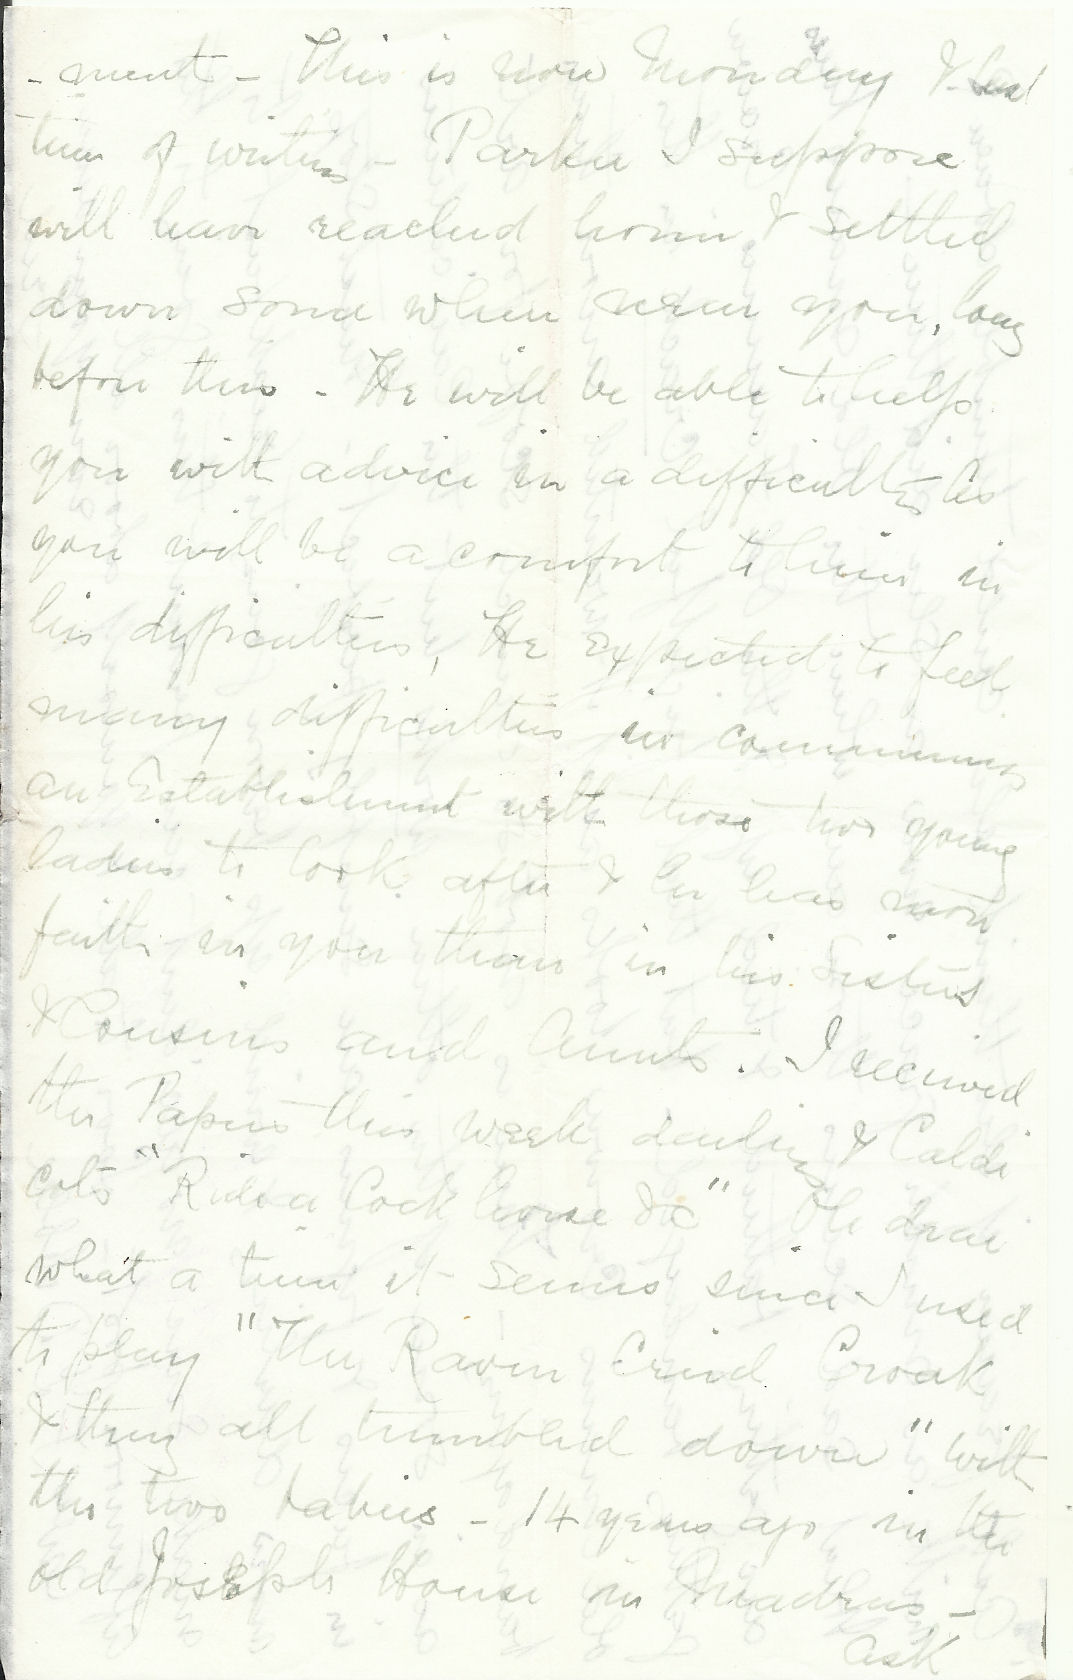 -ment - This is now Monday &
time of writing - Parker I suppose
will have reached home & settled
down some where near you, long
before this - He will be able to help
you with advice in a difficulty As
you will be a comfort to him in
his difficulties, He expected to feel
many difficulties in commencing
an Establishment with those two young
ladies to look after & he has more
faith in you than in his Sisters
& Cousins and Aunts. I received
the Papers this week darling & Caldi
cots "Ride a Cock horse &c" Oh dear
what a time it seems since I used
to play "The Raven Cried Croak
& they all tumbled down" with
the two babies - 14 years ago in the
old Joseph House in Madras -
ask